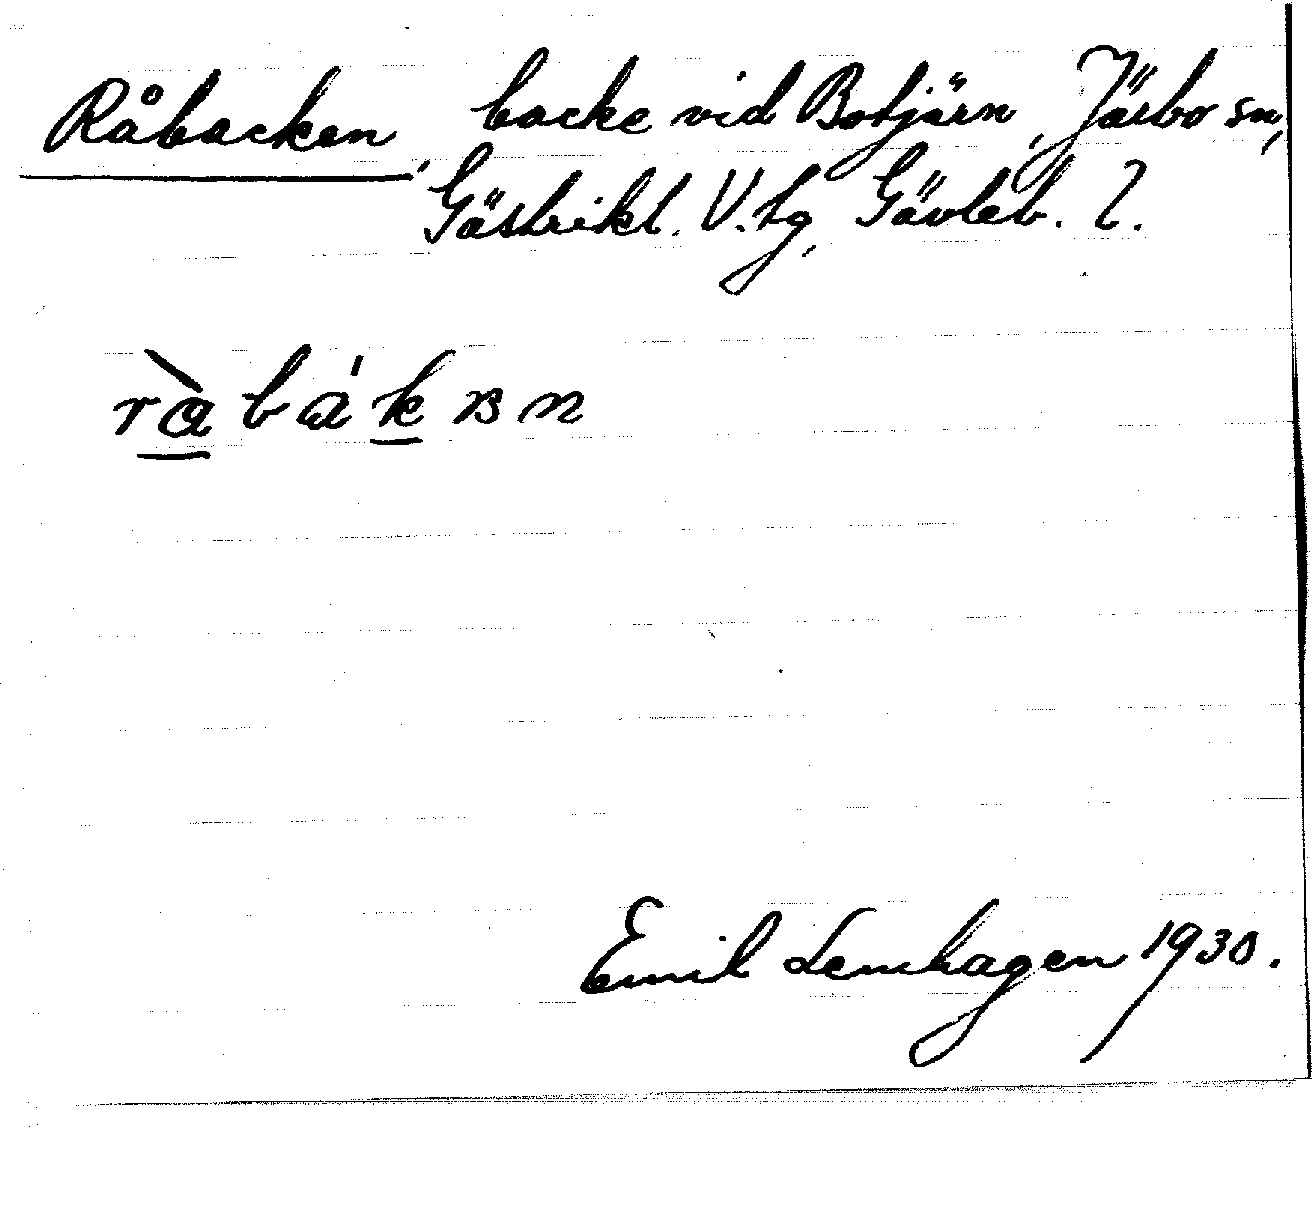 Råbacken, backe vid Botjärn, Järbo sn,
Gästrikl. V. tg, Gävleb. l.
ràbákɞn
Emil Lemhagen 1930.